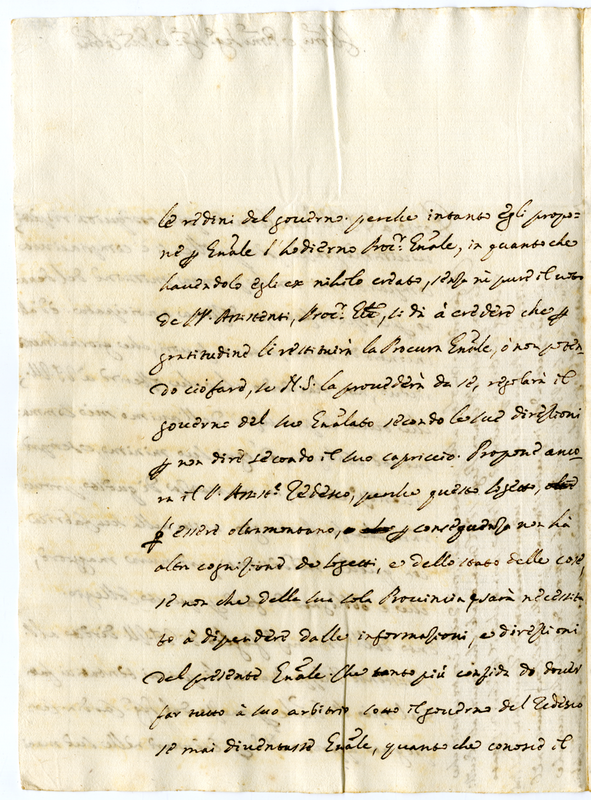 le redini del governo. perche intanto egli propo=
ne p Gnãle l'hodierno Proc.r Gnãle, in quanto che
havendolo egli ex nihilo creato, senza ne pure il voto
de PP. Assistenti, Proc.r si dà à credere che p
gratitudine li restituirà la Procura Gnãle, ò non poten
do ciò fare, se N.S. la provederà da se, regolarà il
governo del suo Gnãlato secondo le sue direzzioni
p non dire secondo il suo capriccio. Propone anco
ra il P. Assist.e Tedesco, perche questo sogetto,
p essere oltramontano, p conseguenza non hà
altra cognizione de sogetti, e dello stato delle cose,
se non che della sua sola Provincia, sarà necessita
to à dipendere dalle informazioni, e direzzioni
del presente Gnãle che tanto più confida do dover
far tutto à suo arbitrio sotto il governo del Tedesco
se mai diventasse Gnãle, quanto che conosce il